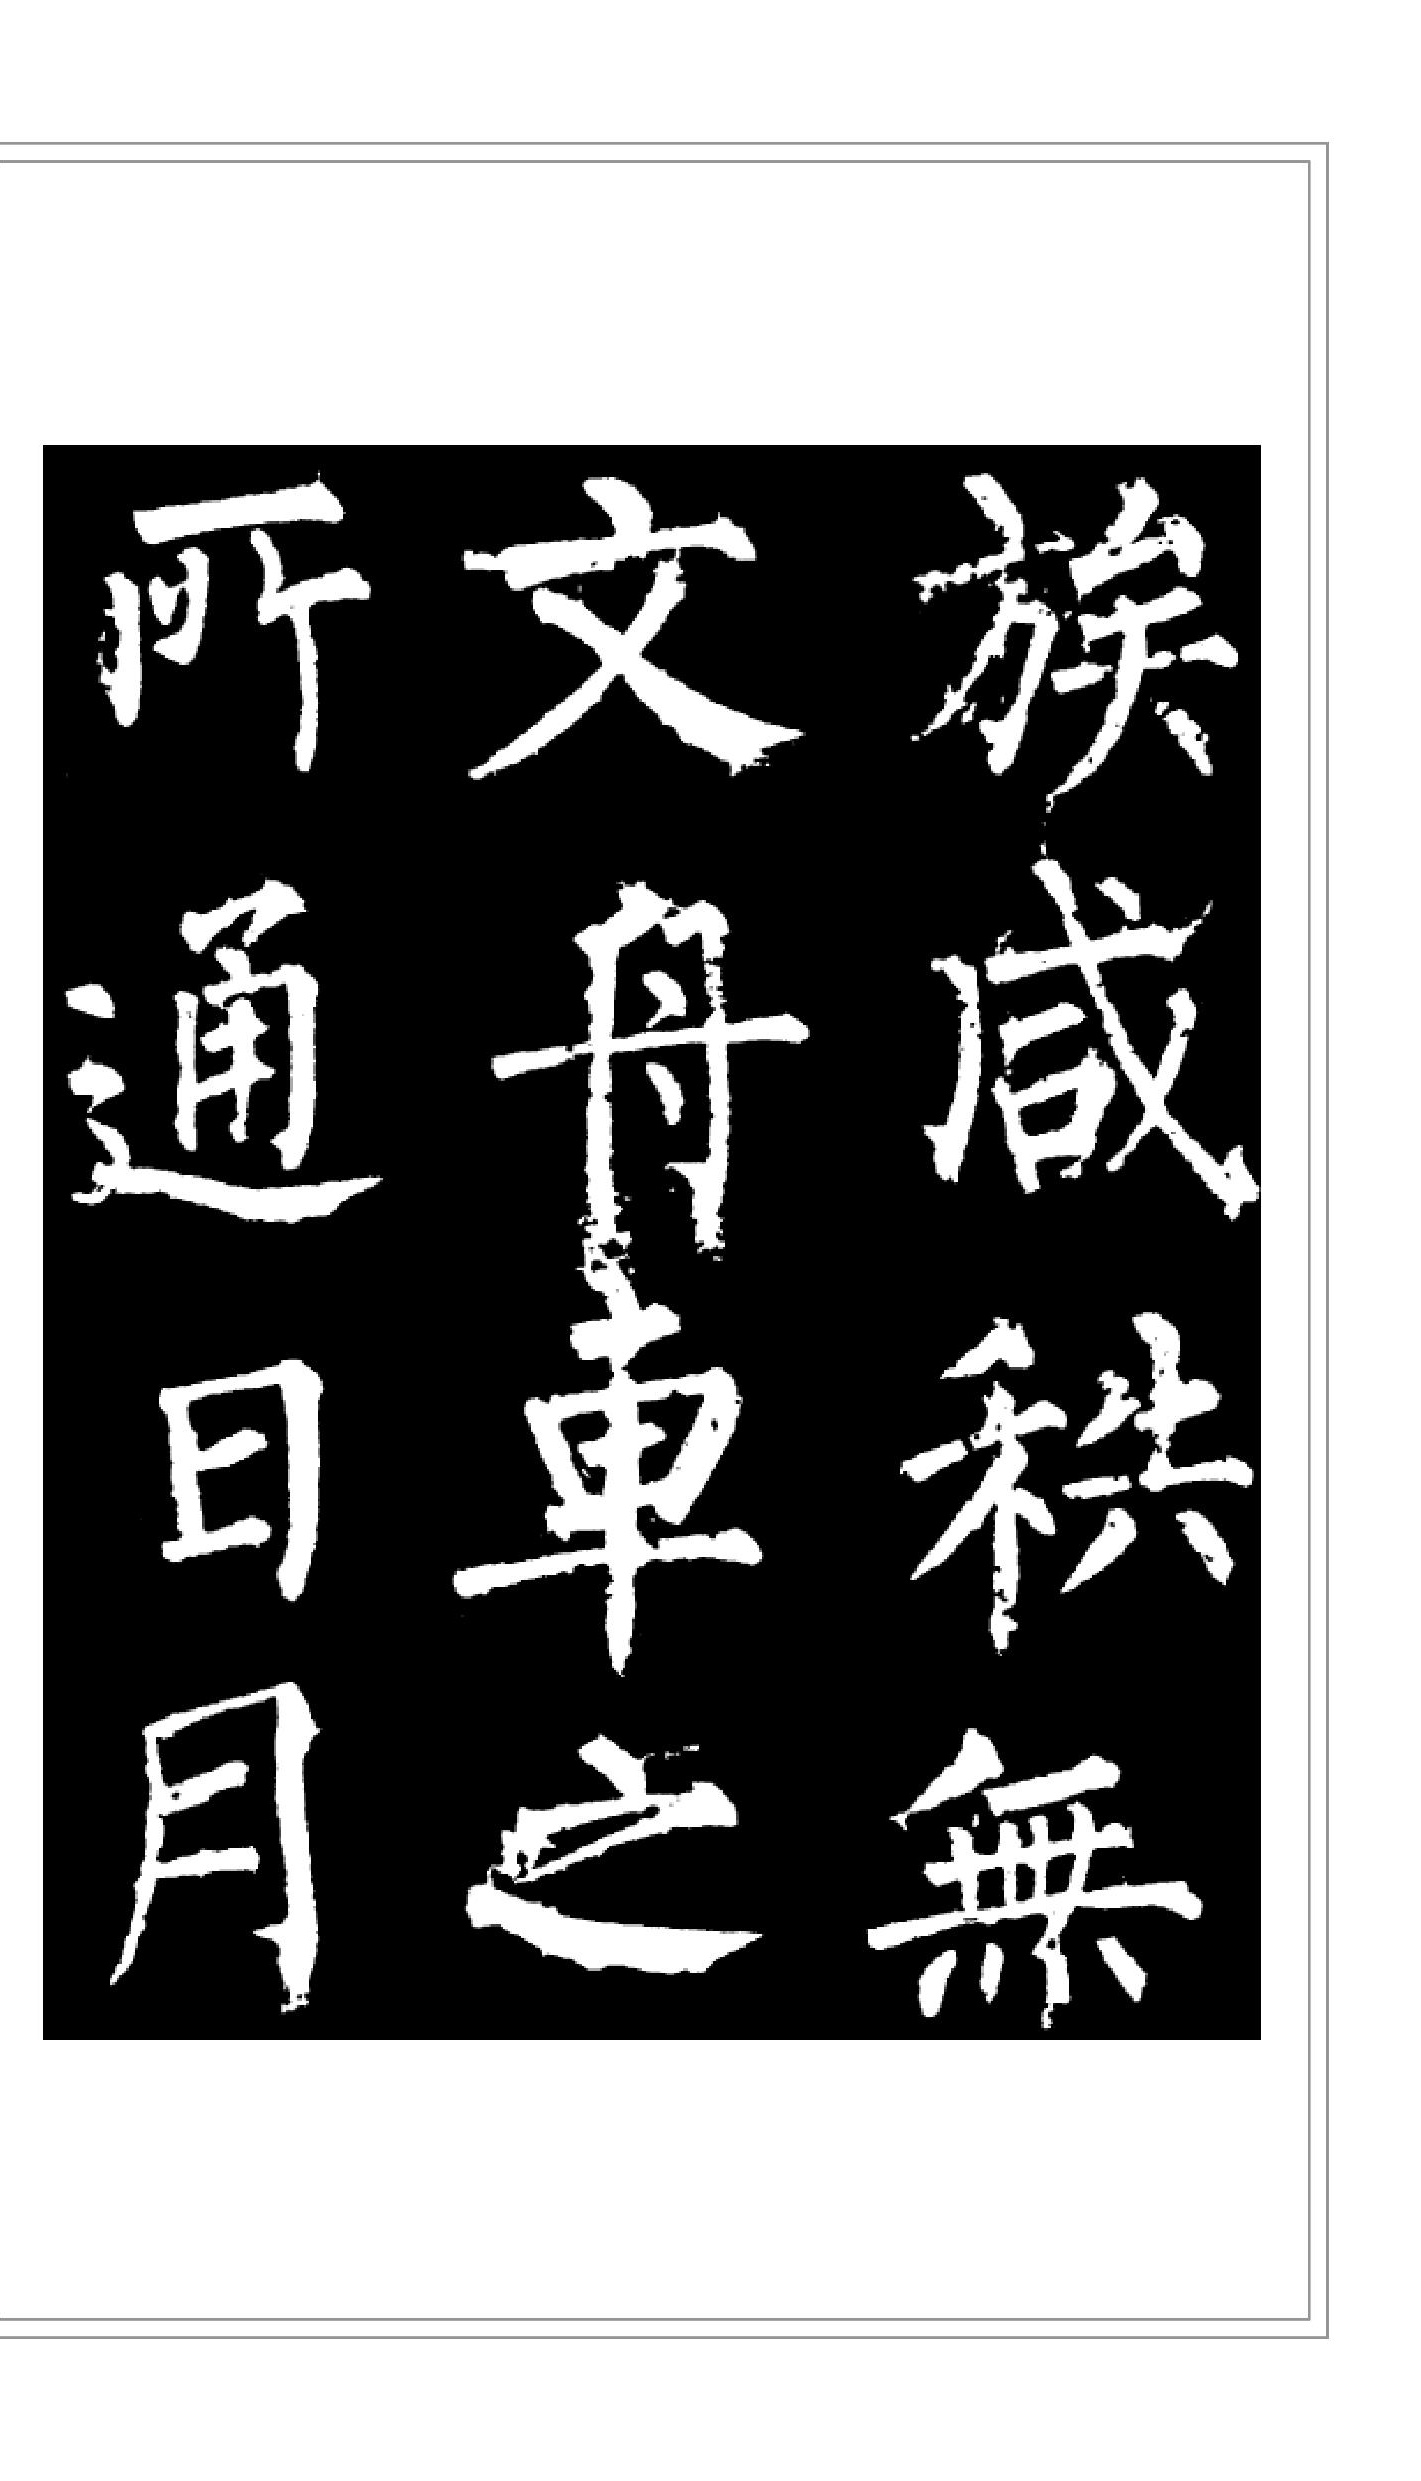 族咸秩無
文舟車之
所通日月